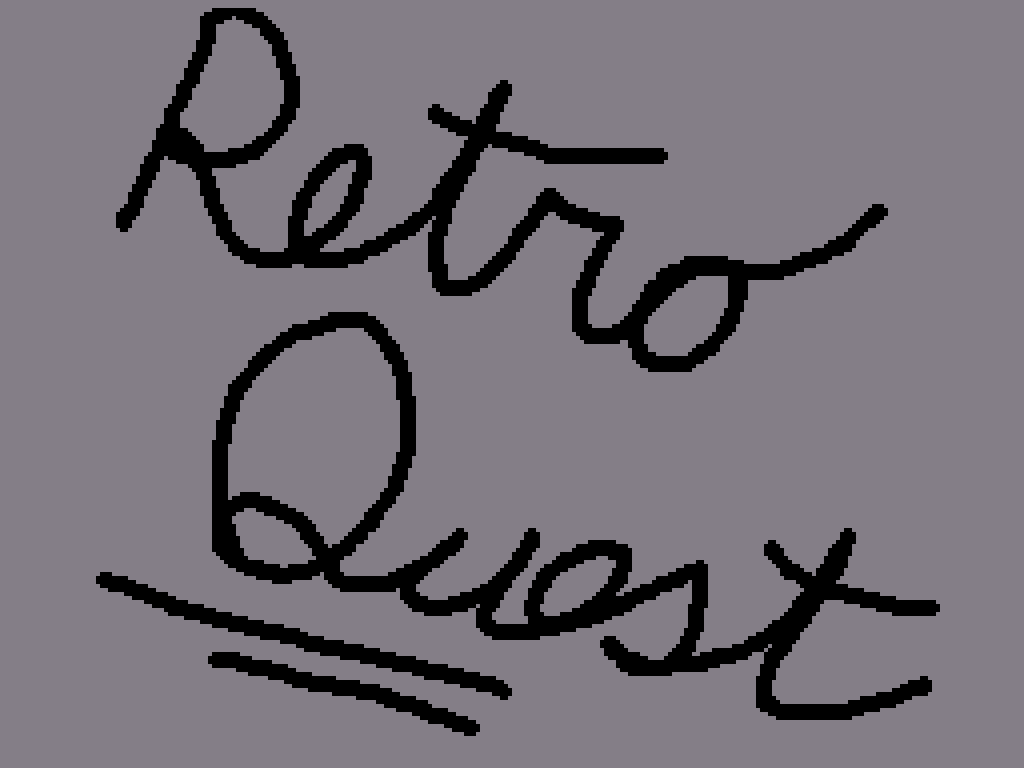 Retro
Quest